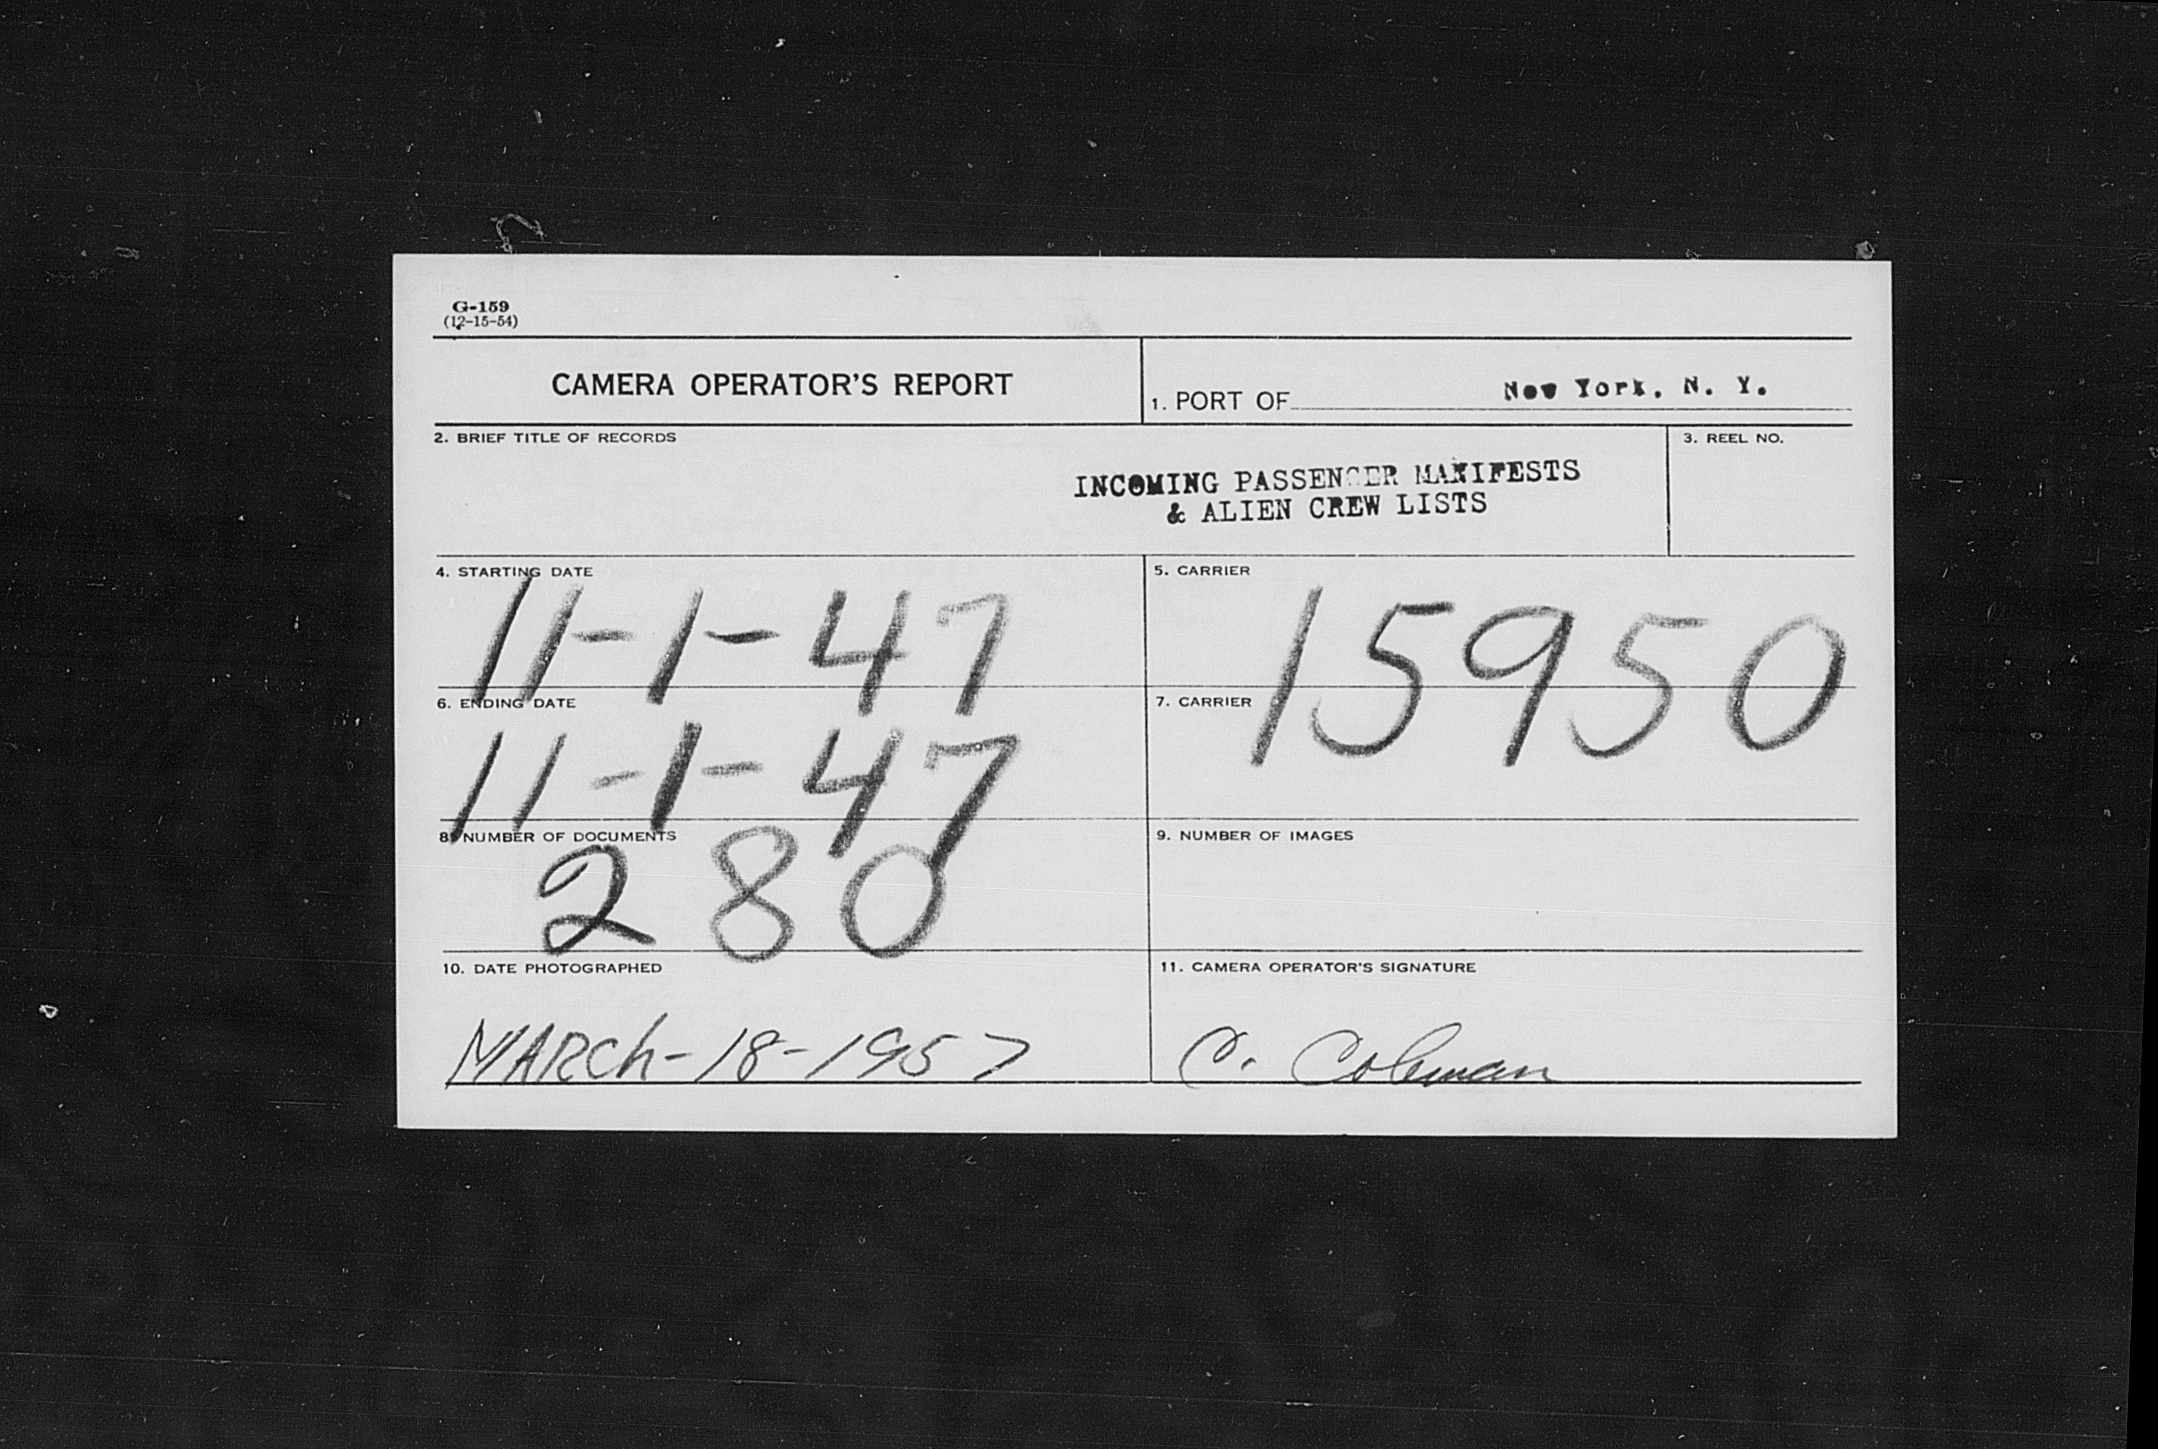 G-159
(12-15-54)
CAMERA OPERATOR'S REPORT
1. PORT OF New York, N. Y.
2. BRIEF TITLE OF RECORDS
INCOMING PASSENGER MANIFESTS
& ALIEN CREW LISTS
3. REEL NO.
4. STARTING DATE
11-1-47
5. CARRIER
15950
6. ENDING DATE
11-1-47
7. CARRIER
8. NUMBER OF DOCUMENTS
280
9. NUMBER OF IMAGES
10. DATE PHOTOGRAPHED
MARCh-18-1957
11. CAMERA OPERATOR'S SIGNATURE
C. Coleman